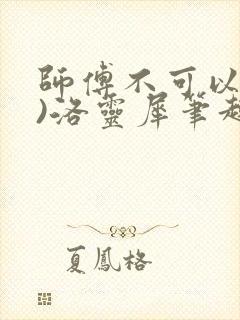 師傅不可以
)洛靈犀筆趣
夏鳳格